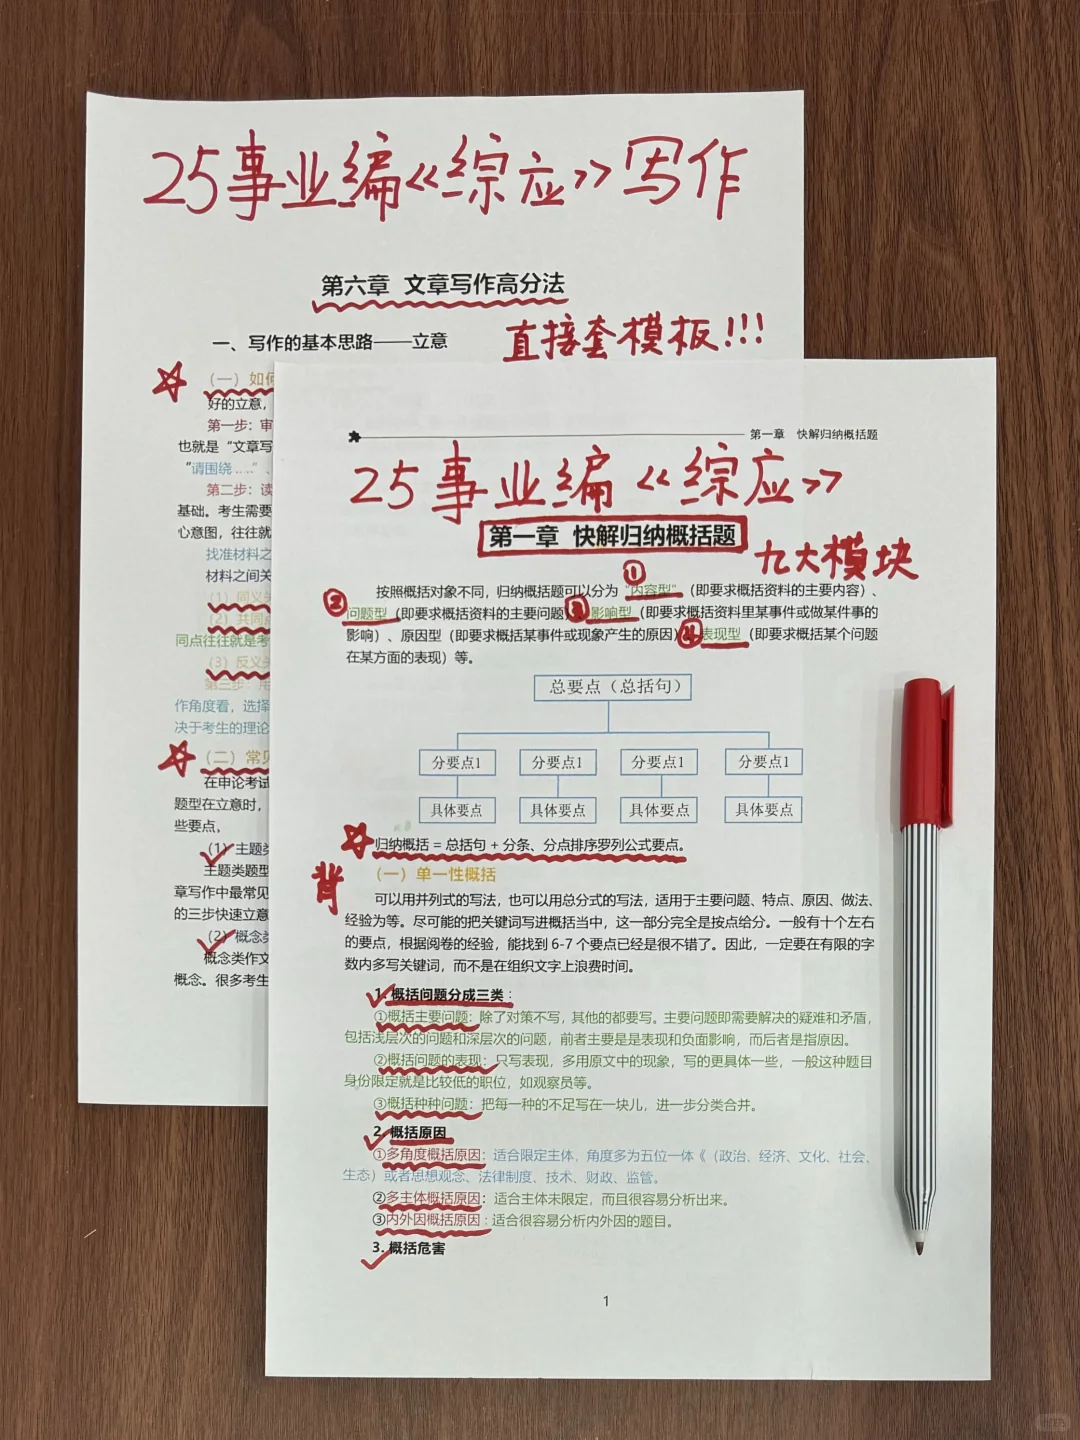 25事业编《综应》写作
第六章 文章写作高分法
一、写作的基本思路——立意
直接套模板!!!
(一)如何
好的立意，
第一步：审
也就是“文章写
“请围绕……”、
第二步：读
基础。考生需要
心意图，往往就
找准材料之
材料之间关
(1)同义关
(2)共同点
同点往往就是考
(3)反义关
第三步：用
作角度看，选择
决于考生的理论
(二)常见
在申论考试
题型在立意时，
些要点，
(1)主题类
主题类题型
章写作中最常见
的三步快速立意
(2)概念类
概念类作文
概念。很多考生
第一章 快解归纳概括题
25事业编《综应》
第一章 快解归纳概括题
九大模块
①
按照概括对象不同，归纳概括题可以分为“内容型”（即要求概括资料的主要内容）、
②问题型（即要求概括资料的主要问题）③影响型（即要求概括资料里某事件或做某件事的
影响）、原因型（即要求概括某事件或现象产生的原因）④表现型（即要求概括某个问题
在某方面的表现）等。
总要点（总括句）
分要点1 分要点1 分要点1 分要点1
具体要点 具体要点 具体要点 具体要点
归纳概括 = 总括句 + 分条、分点排序罗列公式要点。
背
（一）单一性概括
可以用并列式的写法，也可以用总分式的写法，适用于主要问题、特点、原因、做法、
经验为等。尽可能的把关键词写进概括当中，这一部分完全是按点给分。一般有十个左右
的要点，根据阅卷的经验，能找到 6-7 个要点已经是很不错了。因此，一定要在有限的字
数内多写关键词，而不是在组织文字上浪费时间。
1. 概括问题分成三类：
①概括主要问题：除了对策不写，其他的都要写。主要问题即需要解决的疑难和矛盾，
包括浅层次的问题和深层次的问题，前者主要是是表现和负面影响，而后者是指原因。
②概括问题的表现：只写表现，多用原文中的现象，写的更具体一些，一般这种题目
身份限定就是比较低的职位，如观察员等。
③概括种种问题：把每一种的不足写在一块儿，进一步分类合并。
2. 概括原因
①多角度概括原因：适合限定主体，角度多为五位一体《（政治、经济、文化、社会、
生态）或者思想观念、法律制度、技术、财政、监管。
②多主体概括原因：适合主体未限定，而且很容易分析出来。
③内外因概括原因：适合很容易分析内外因的题目。
3. 概括危害
1